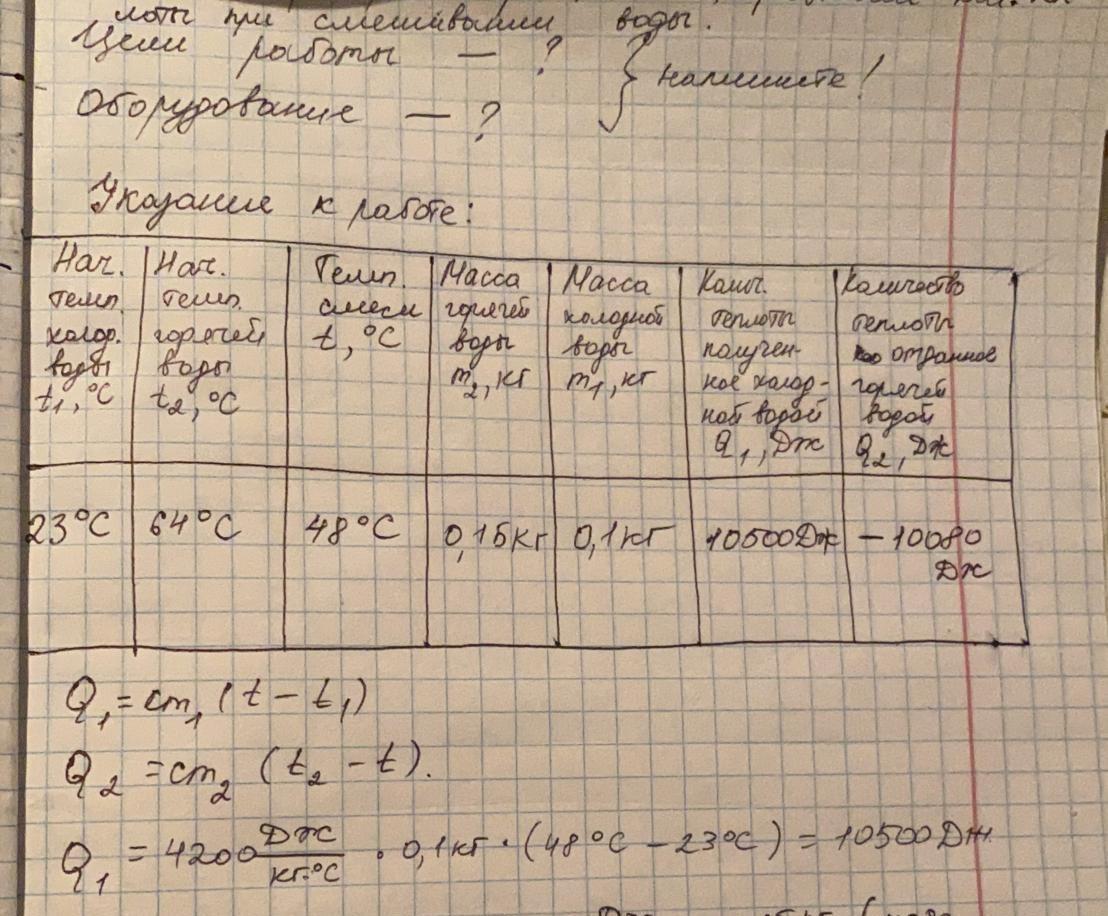 лоты при смешивании воды.
Цели работы — ?
} напишите!
Оборудование — ?
Указание к работе:
Нач. темп. холод. воды t₁, °C
Нач. темп. горячей воды t₂, °C
Темп. смеси t, °C
Масса горячей воды m₂, кг
Масса холодной воды m₁, кг
Колич. теплоты получен- ное холод- ной водой Q₁, Дж
Количество теплоты отданное горячей водой Q₂, Дж
23°C
64°C
48°C
0,15кг
0,1кг
10500Дж
-10080 Дж
Q₁ = cm₁ (t - t₁)
Q₂ = cm₂ (t₂ - t).
Q₁ = 4200 Дж/кг·°C · 0,1кг · (48°C - 23°C) = 10500Дж